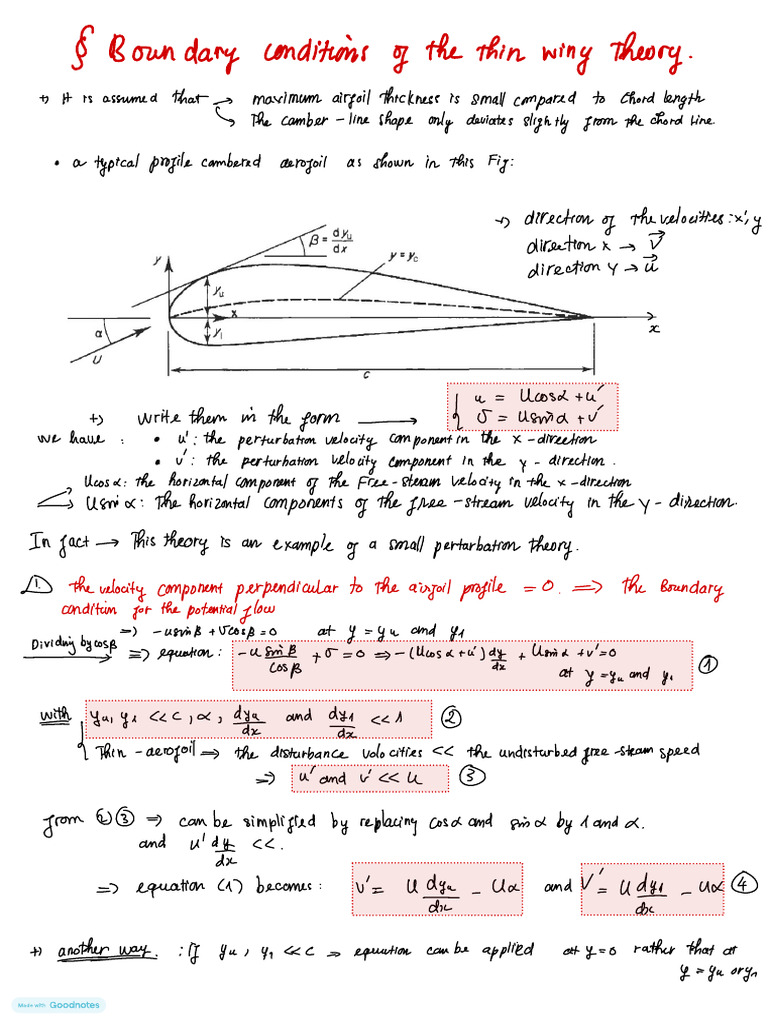 § Boundary conditions of the thin wing Theory.
+) It is assumed that → maximum airfoil thickness is small compared to chord length
↳ The camber-line shape only deviates slightly from the chord line.
• a typical profile cambered aerofoil as shown in this Fig:
+) direction of the velocities: x', y
direction x → V
direction y → u
β = dyu/dx
y = yc
y
yu
x
yl
α
U
x
c
+) write them in the form → { u = Ucosα + u'
v = Usinα + v'
we have : • u' : the perturbation velocity component in the x-direction
• v' : the perturbation velocity component in the y-direction.
Ucosα: the horizontal component of the Free-stream velocity in the x-direction
Usinα: The horizontal components of the free-stream velocity in the y-direction.
In fact → This theory is an example of a small pertarbation theory.
1. the velocity component perpendicular to the airfoil profile = 0. ⟹ the Boundary
condition for the potential flow
⟹ -usinβ + vcosβ = 0 at y = yu and y1
Dividing by cosβ ⟹ equation: -u sinβ/cosβ + v = 0 ⟹ -(Ucosα + u') dy/dx + Usinα + v' = 0
at y = yu and y1 ①
with { yu, y1 << c, α, dyu/dx and dy1/dx << 1 ②
Thin-aerofoil ⟹ the disturbance velocities << the undisturbed free-steam speed
⟹ u' and v' << U ③
from ② ③ ⟹ can be simplified by replacing cosα and sinα by 1 and α.
and u' dy/dx <<.
⟹ equation (1) becomes: v' = U dyu/dx - Uα and V' = U dy1/dx - Uα ④
+) another way. : If yu, y1 << c ⟹ equation can be applied at y=0 rather that at
y = yu or y1
Made with Goodnotes